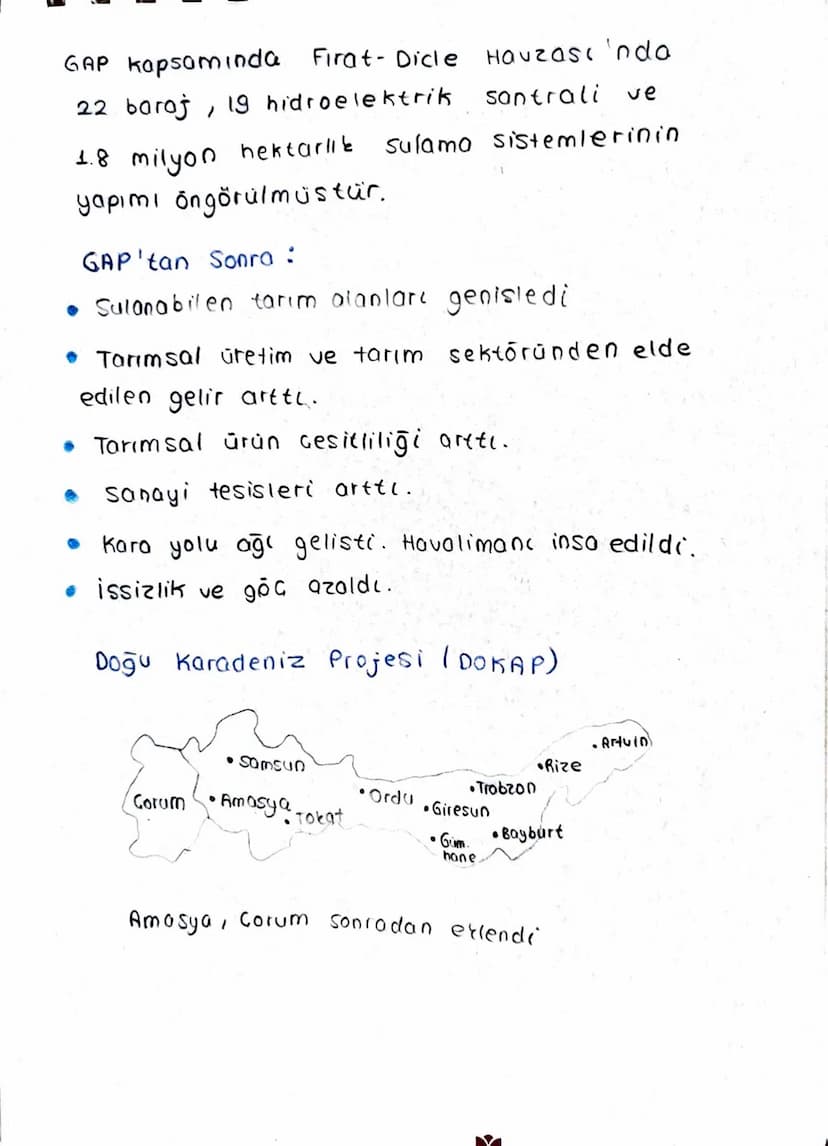 GAP kapsamında Fırat-Dicle Havzası'nda
22 baraj, 19 hidroelektrik santrali ve
1.8 milyon hektarlık sulama sistemlerinin
yapımı öngörülmüstür.
GAP'tan Sonra:
• Sulanabilen tarım alanları genisledi
• Tarımsal üretim ve tarım sektöründen elde
edilen gelir arttı.
• Tarımsal ürün cesitliliği arttı.
• Sanayi tesisleri arttı.
• Kara yolu ağı gelisti. Havalimanı insa edildi.
• İssizlik ve göc azaldı.
Doğu Karadeniz Projesi (DOKAP)
• Artvin
• Samsun
• Rize
• Trabzon
Corum
• Amasya
• Ordu
• Giresun
• Tokat
• Bayburt
• Güm.
hane
Amasya, Corum sonradan eklendi